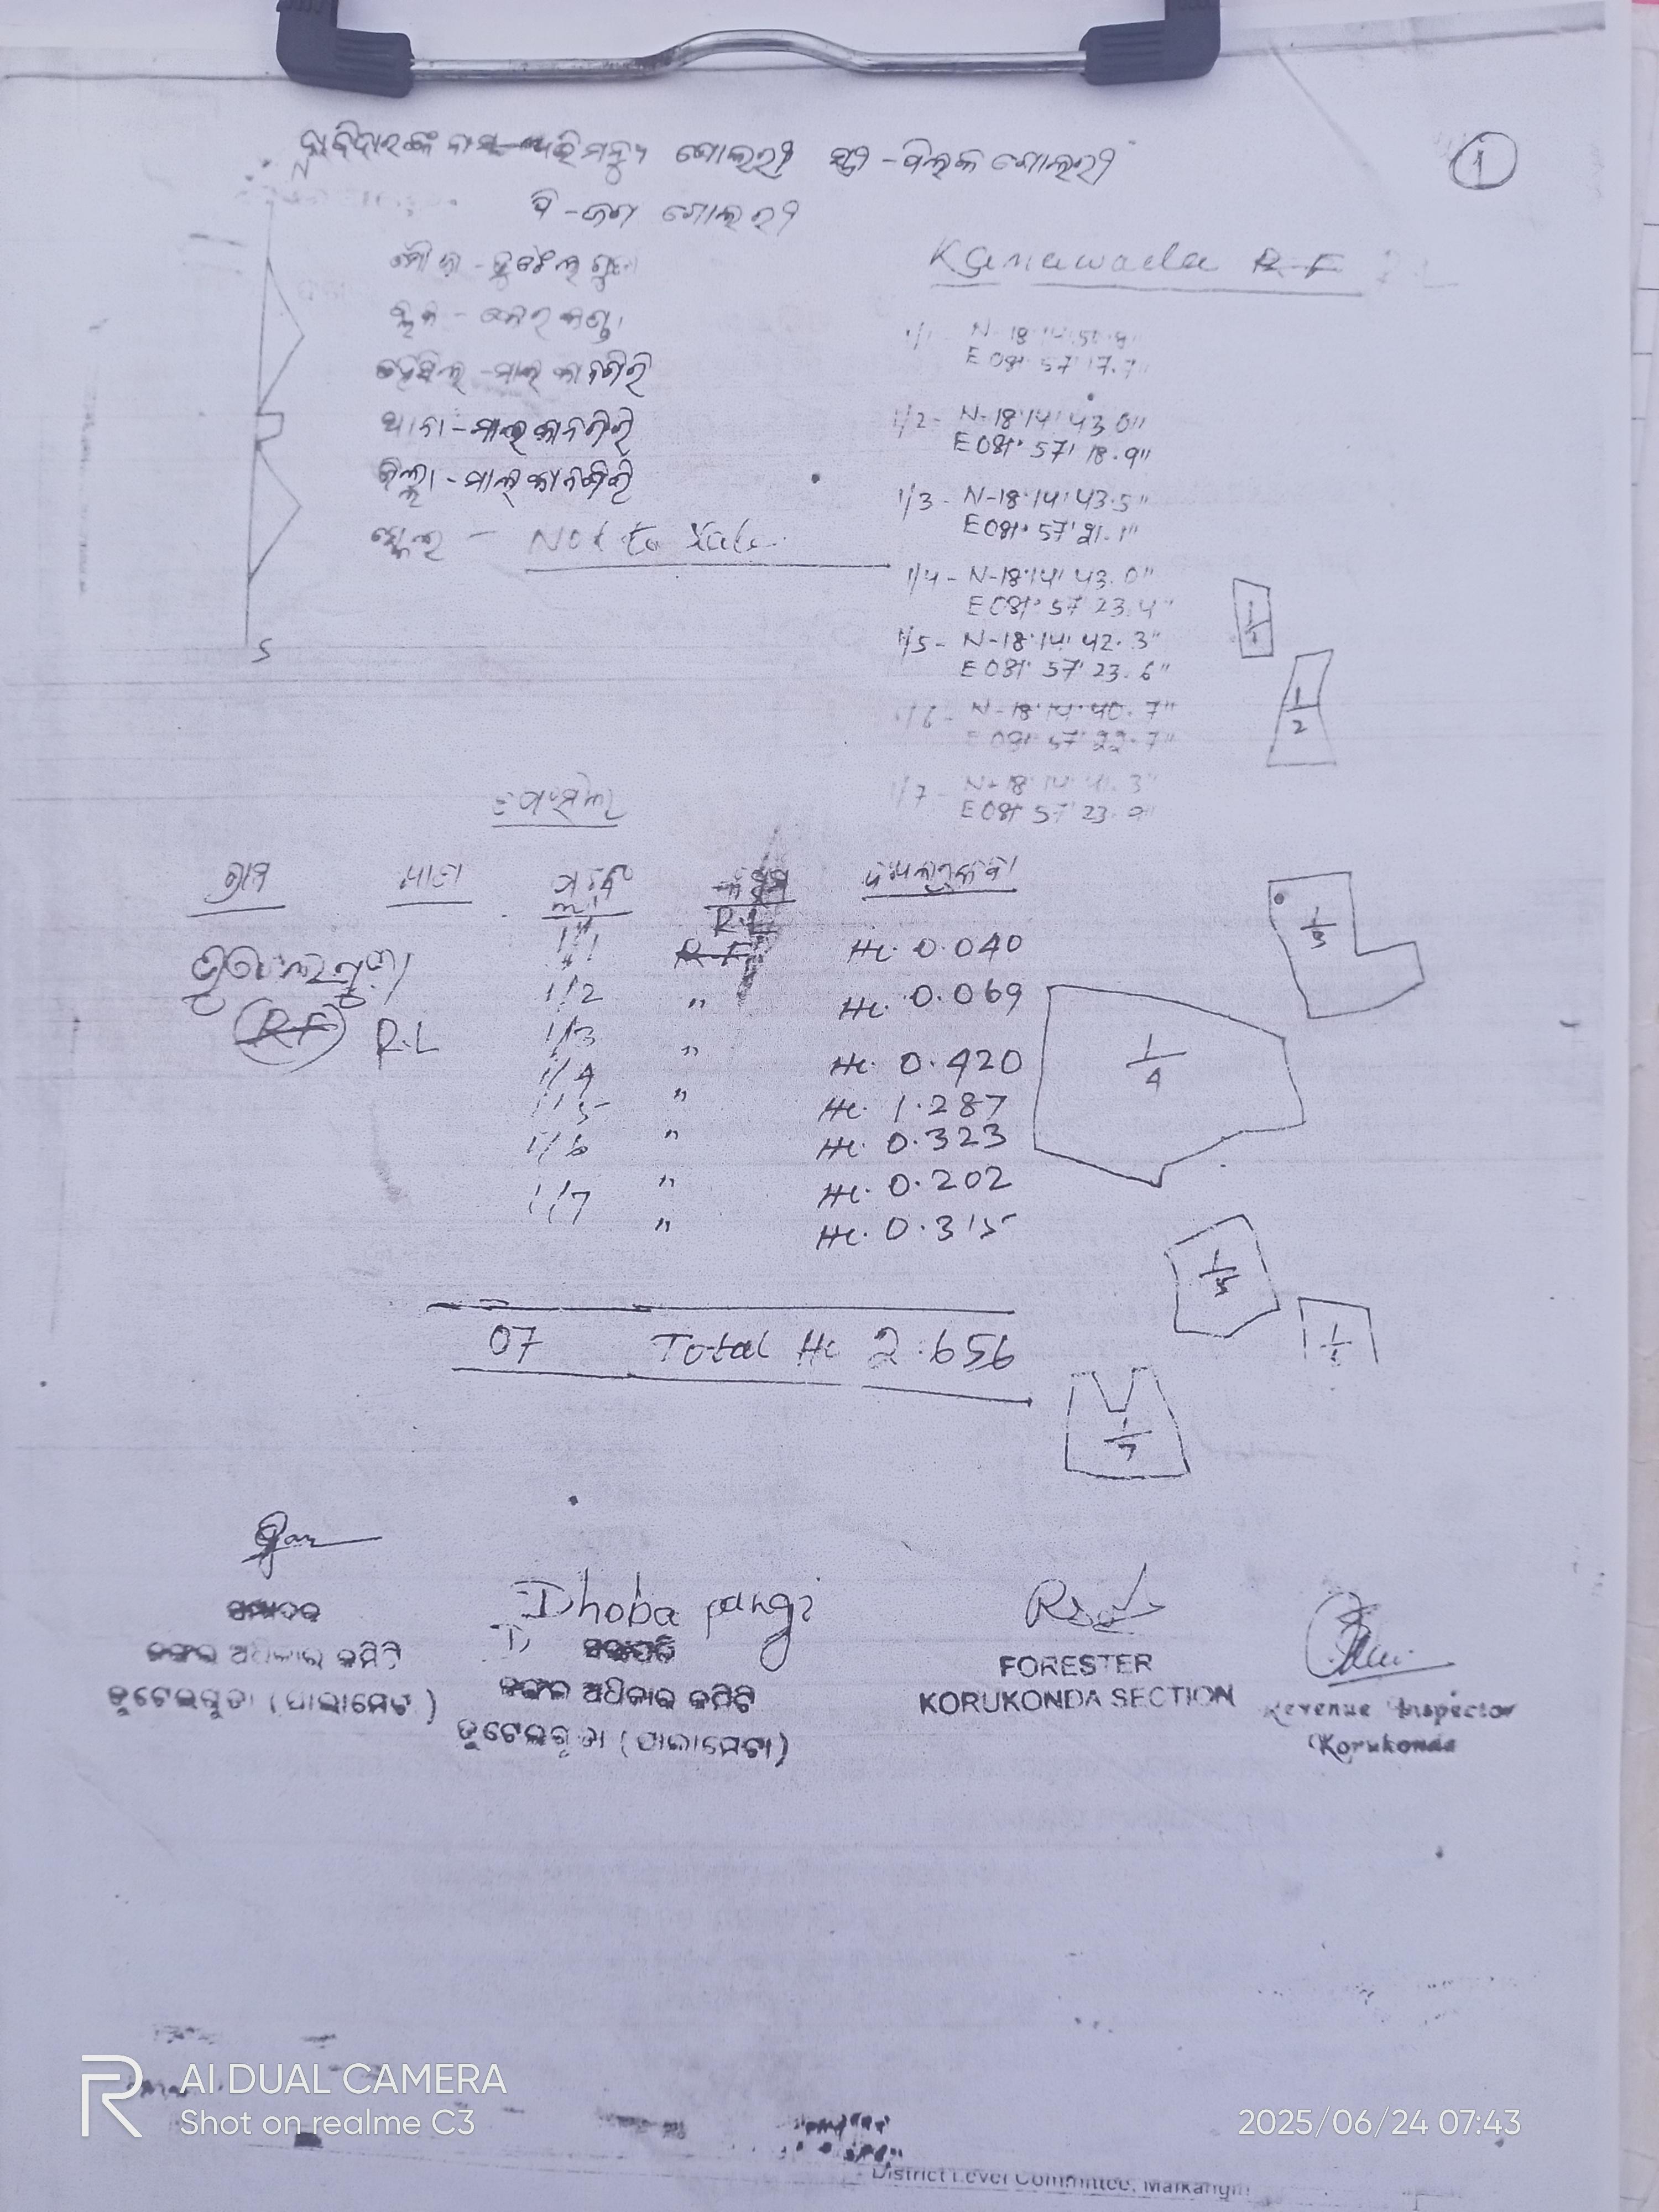 ଦାବିଦାରଙ୍କ ନାମ-ଅଭିମନ୍ୟୁ ଗୋଲରୀ ସ୍ତ୍ରୀ-ତିଲକ ଗୋଲରୀ
1
ପି-ଜଗ ଗୋଲରୀ
N
ମୌଜା-
Kanawada R-F
ବ୍ଲକ -
ତହସିଲ-ମାଲକାନଗିରି
ଥାନା-ମାଲକାନଗିରି
ଜିଲ୍ଲା-ମାଲକାନଗିରି
ସ୍କେଲ - Not to
S
E 081° 57' 17.7"
1/2- N-18°14' 43.0"
E 081° 57' 18.9"
1/3- N-18°14' 43.5"
E 081° 57' 21.1"
1/4- N-18°14' 43.0"
E 081° 57' 23.4"
1/5- N-18°14' 42.3"
E 081° 57' 23.6"
1/6- N-18°14' 40.7"
E 081° 57' 22.7"
1/7- N-18°14' 41.3"
E 081° 57' 23.9"
ତପସିଲ
ଗ୍ରାମ ଖାତା କିସମ
R.L
1/1 R-F Hc. 0.040
1/2 " Hc. 0.069
R-F R.L 1/3 " Hc. 0.420
1/4 " Hc. 1.287
1/5 " Hc. 0.323
1/6 " Hc. 0.202
1/7 " Hc. 0.315
07 Total Hc 2.656
1/1
1/2
1/3
1/4
1/5
1/7
Dhoba pangi
ସମ୍ପାଦକ
ଜଙ୍ଗଲ ଅଧିକାର କମିଟି
ଡୁଟେଲଗୁଡା (ପାଲାମେଟା)
ସଭାପତି
ଜଙ୍ଗଲ ଅଧିକାର କମିଟି
ଡୁଟେଲଗୁଡା (ପାଲାମେଟା)
FORESTER
KORUKONDA SECTION
Revenue Inspector
Korukonda
District Level Committee, Malkangiri
AI DUAL CAMERA
Shot on realme C3
2025/06/24 07:43